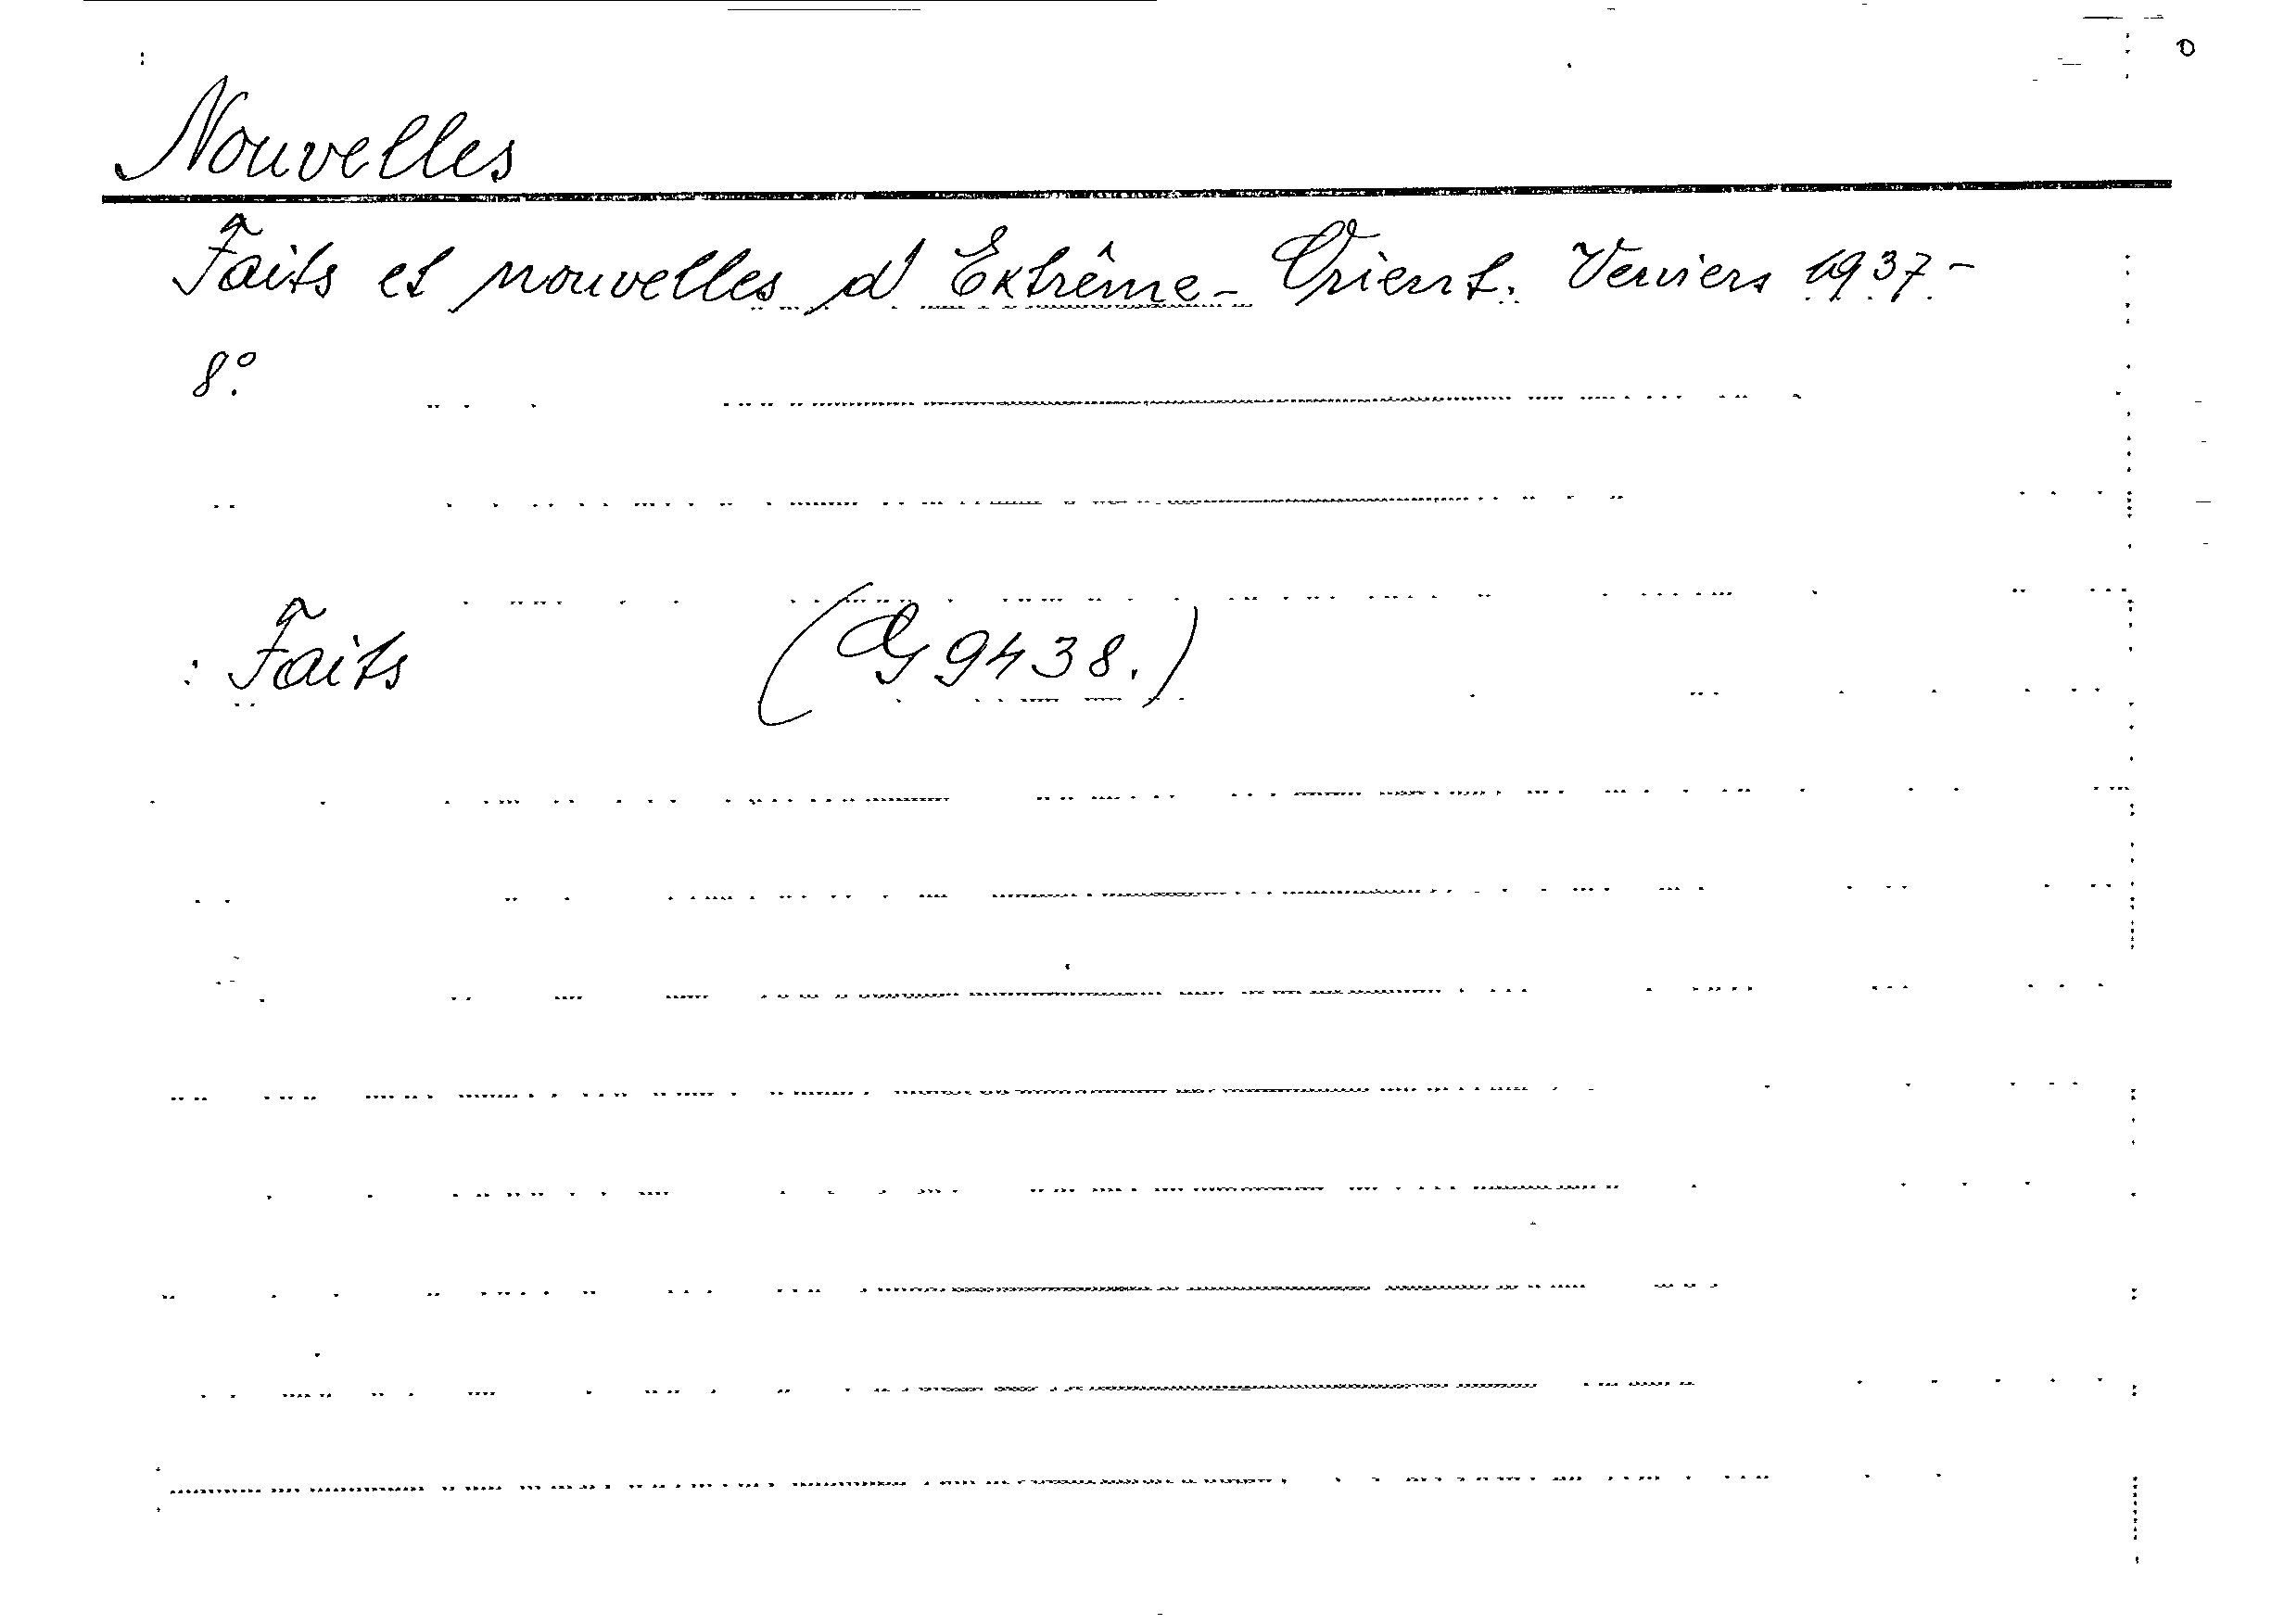 Nouvelles
Faits et nouvelles d'Extrême-Orient. Verviers 1937-
8º.
: Faits (G 9438.)